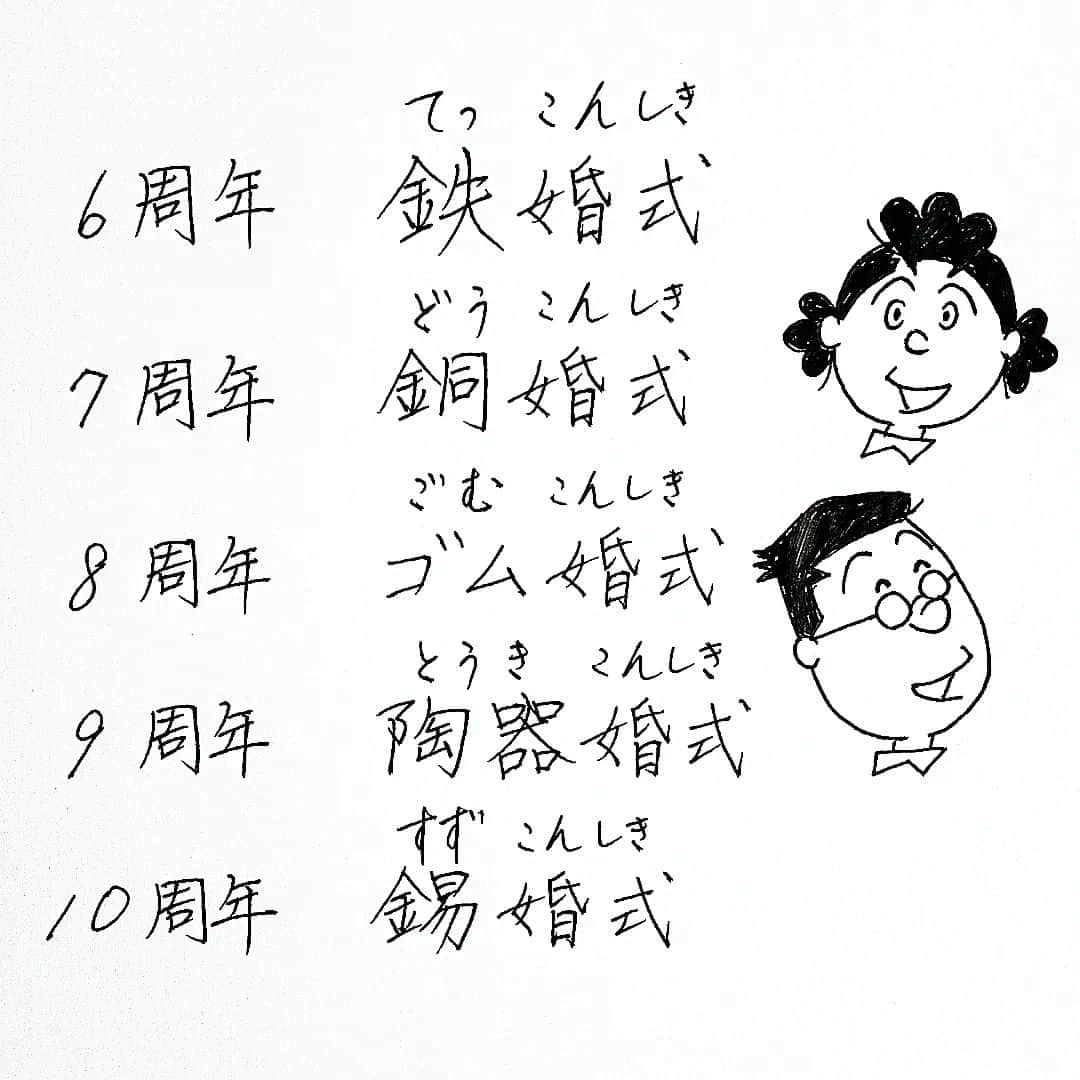 てっ こんしき
6周年 鉄婚式
どう こんしき
7周年 銅婚式
ごむ こんしき
8周年 ゴム婚式
とうき こんしき
9周年 陶器婚式
すず こんしき
10周年 錫婚式